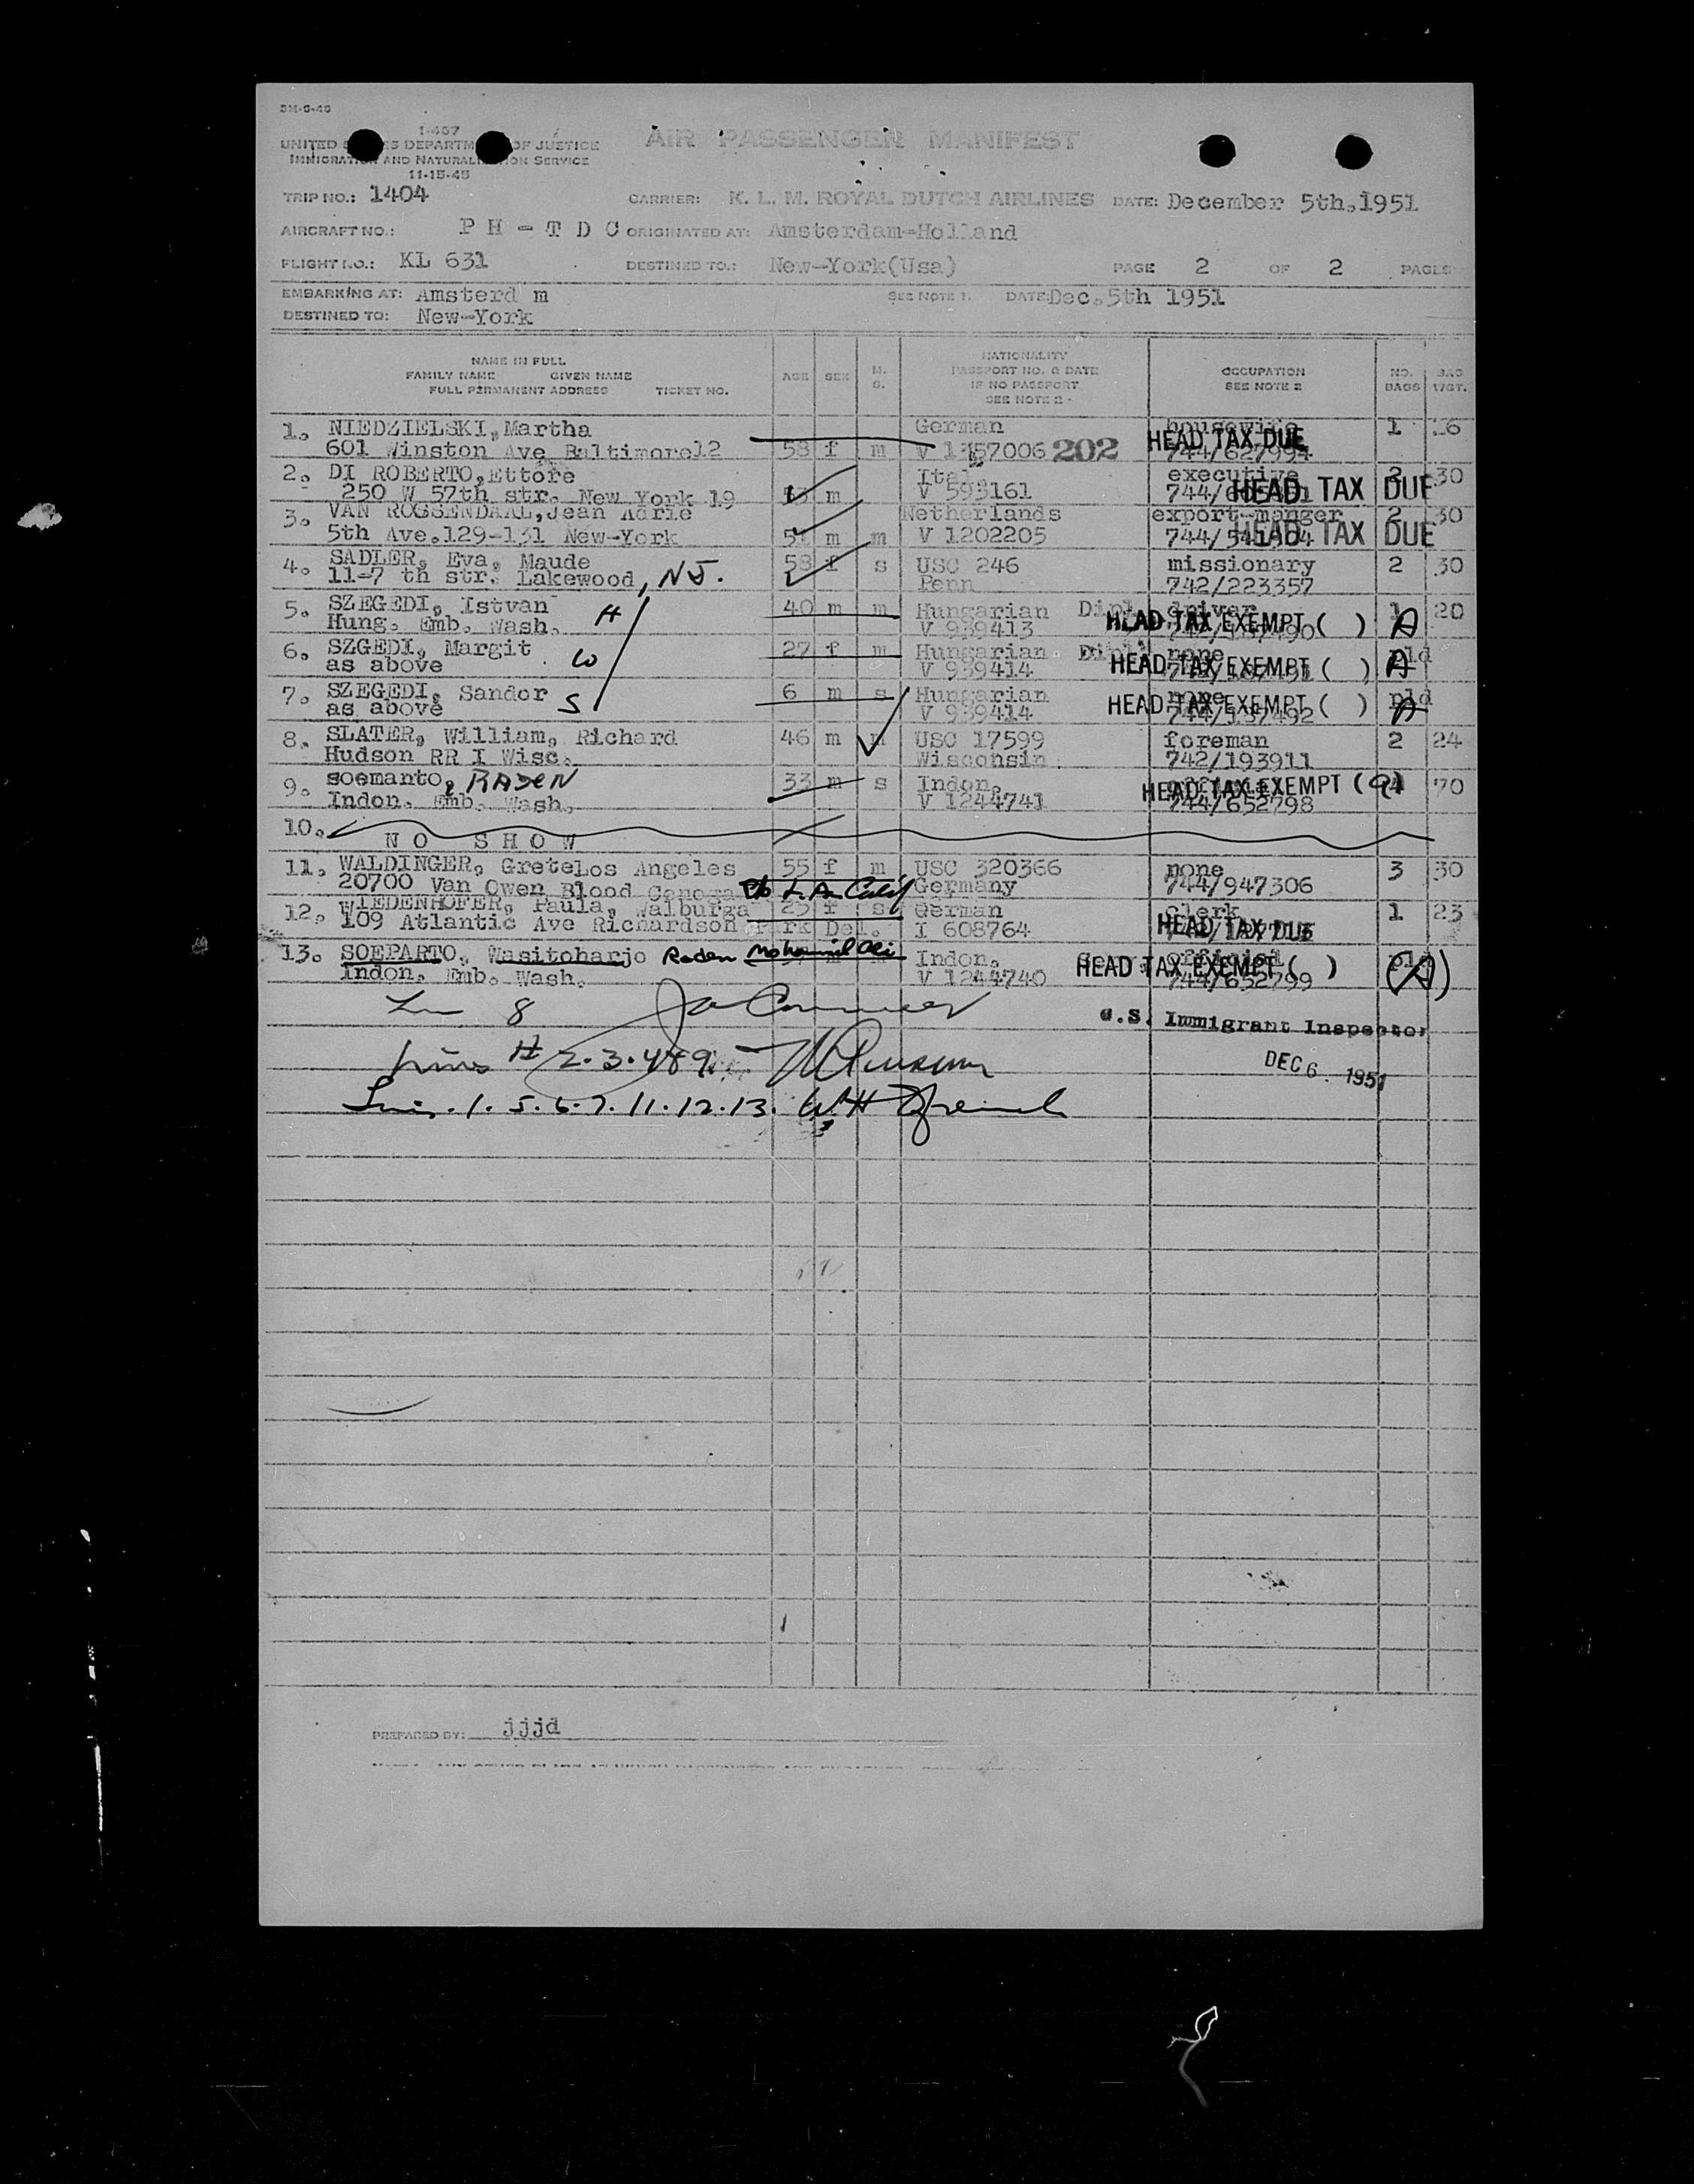 3M-6-46
I-467
UNITED S ES DEPARTM OF JUSTICE
IMMIGRATION AND NATURALIZATION SERVICE
11-15-45
AIR PASSENGER MANIFEST
TRIP NO.: 1404 CARRIER: K. L. M. ROYAL DUTCH AIRLINES DATE: December 5th.1951
AIRCRAFT NO.: P H - T D C ORIGINATED AT: Amsterdam-Holland
FLIGHT NO.: KL 631 DESTINED TO.: New-York(Usa) PAGE 2 OF 2 PAGES
EMBARKING AT: Amsterd m SEE NOTE 1. DATE:Dec.5th 1951
DESTINED TO: New-York
NAME IN FULL
FAMILY NAME GIVEN NAME
FULL PERMANENT ADDRESS TICKET NO.
AGE SEX M. S.
NATIONALITY
PASSPORT NO. & DATE
IF NO PASSPORT
SEE NOTE 2
OCCUPATION
SEE NOTE 2
NO. BAGS BAG WGT.
1. NIEDZIELSKI, Martha German housewife 1 16
601 Winston Ave Baltimore12 58 f m 202 HEAD TAX DUE
2. DI ROBERTO, Ettore Ital. executive 2 30
250 W 57th str. New York 19 m V 593161 HEAD TAX DUE
3. VAN ROGSENDAAL, Jean Adrie Netherlands export-manger 2 30
5th Ave.129-131 New-York m m V 1202205 HEAD TAX DUE
4. SADLER, Eva, Maude 58 f s USC 246 missionary 2 30
11-7 th str. Lakewood, N.J. Penn 742/223357
5. SZEGEDI, Istvan H 40 m m Hungarian Dipl. driver 1 20
Hung. Emb. Wash. V 939413 HEAD TAX EXEMPT ( ) A
6. SZGEDI, Margit 27 f m Hungarian Dipl. none pld
as above W V 939414 HEAD TAX EXEMPT ( ) A
7. SZEGEDI, Sandor 6 m s Hungarian none pld
as above S V 939414 HEAD TAX EXEMPT ( ) A
8. SLATER, William, Richard 46 m m USC 17599 foreman 2 24
Hudson RR I Wisc. Wisconsin 742/193911
9. soemanto, RADEN 33 m s Indon. HEAD TAX EXEMPT ( ) 4 70
Indon. Emb. Wash. V 1244741 744/652798
10. NO SHOW
11. WALDINGER, GreteLos Angeles 55 f m USC 320366 none 3 30
20700 Van Owen Blood L.A. Calif Germany 744/947306
12. WIEDENHOFER, Paula, Walburga 23 f s German clerk 1 23
109 Atlantic Ave Richardson Park Del. I 608764 HEAD TAX DUE
13. SOEPARTO, Wasitoharjo Raden Mohammed Ali Indon. official pld
Indon. Emb. Wash. V 1244740 HEAD TAX EXEMPT ( ) 744/652799 (A)
8
U.S. Immigrant Inspector
2.3.4 & 9
DEC 6. 1951
1. 5. 6. 7. 11. 12. 13. W.H.
PREPARED BY: jjjd